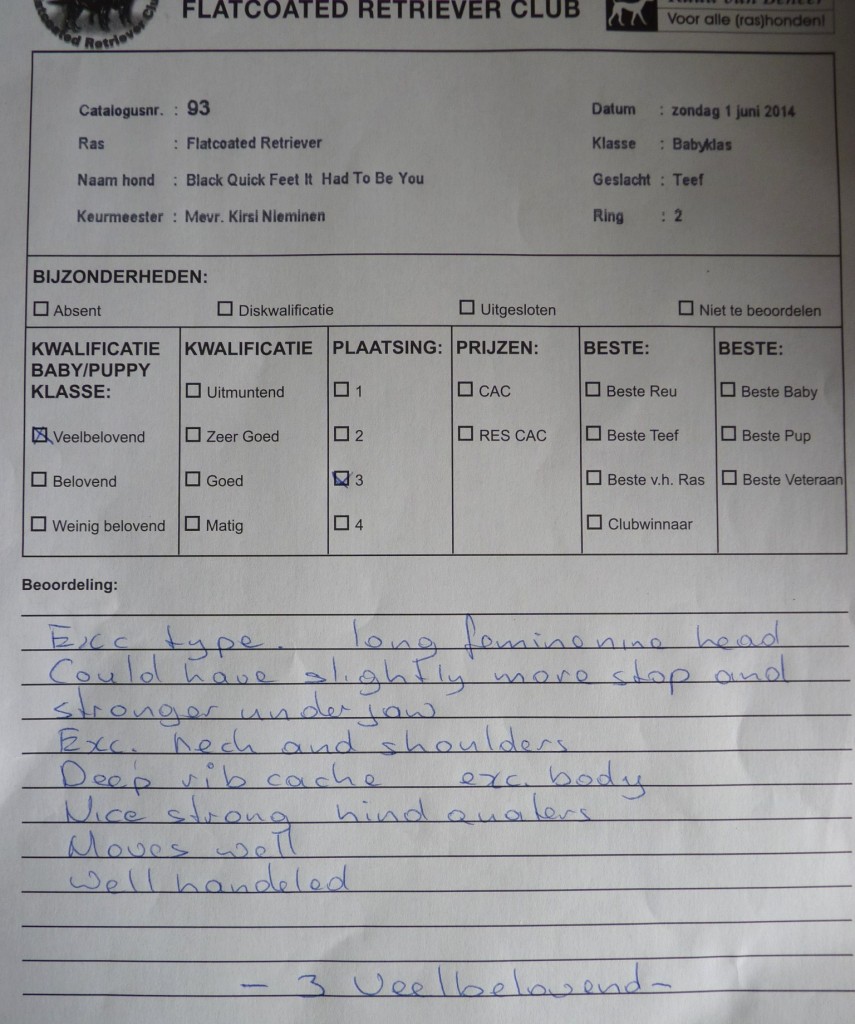 FLATCOATED RETRIEVER CLUB
Voor alle (ras)honden!
Catalogusnr. : 93
Datum : zondag 1 juni 2014
Ras : Flatcoated Retriever
Klasse : Babyklas
Naam hond : Black Quick Feet It Had To Be You
Geslacht : Teef
Keurmeester : Mevr. Kirsi Nieminen
Ring : 2
BIJZONDERHEDEN:
Absent Diskwalificatie Uitgesloten Niet te beoordelen
KWALIFICATIE
BABY/PUPPY
KLASSE:
Veelbelovend
Belovend
Weinig belovend
KWALIFICATIE
Uitmuntend
Zeer Goed
Goed
Matig
PLAATSING:
1
2
3
4
PRIJZEN:
CAC
RES CAC
BESTE:
Beste Reu
Beste Teef
Beste v.h. Ras
Clubwinnaar
BESTE:
Beste Baby
Beste Pup
Beste Veteraan
Beoordeling:
Exc type. long feminenine head
Could have slightly more stop and
stronger under jaw
Exc. neck and shoulders
Deep rib cache exc. body
Nice strong hind quaters
Moves well
Well handeled
- 3 Veelbelovend -